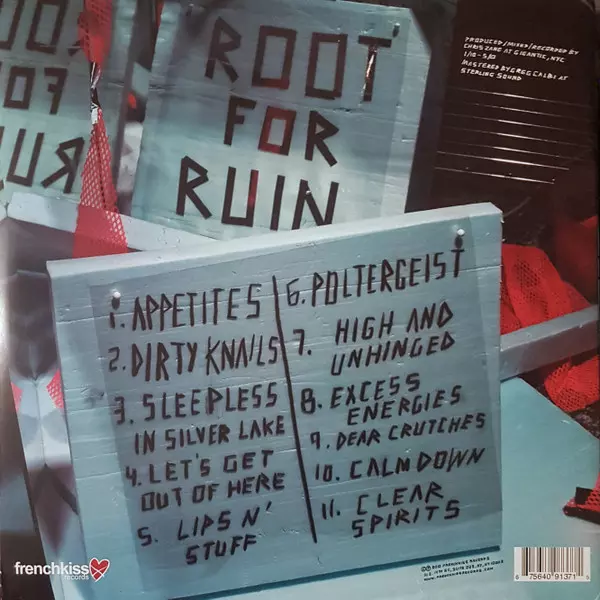 ROOT
FOR
RUIN
PRODUCED/MIXED/RECORDED BY
CHRIS ZANE AT GIGANTIC, NYC
MASTERED BY GREG CALBI AT
STERLING SOUND
1. APPETITES
2. DIRTY KNAILS
3. SLEEPLESS
IN SILVER LAKE
4. LET'S GET
OUT OF HERE
5. LIPS N'
STUFF
6. POLTERGEIST
7. HIGH AND
UNHINGED
8. EXCESS
ENERGIES
9. DEAR CRUTCHES
10. CALM DOWN
11. CLEAR
SPIRITS
frenchkiss
records
FRENCHKISS RECORDS
WWW.FRENCHKISSRECORDS.COM
6 75640 91371 5